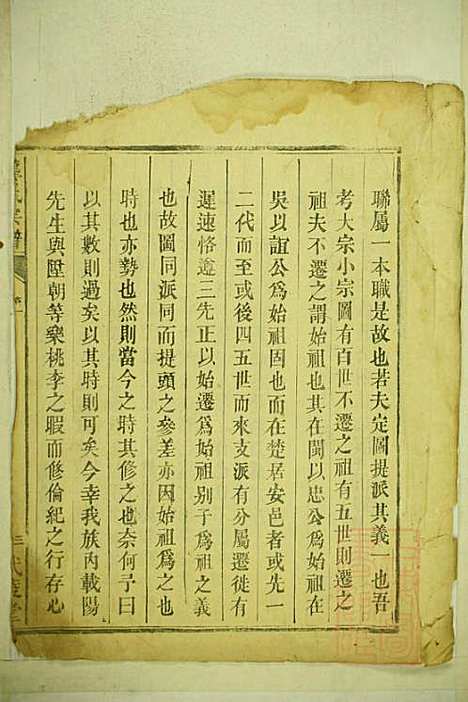 聯屬一本職是故也若夫定圖提派其義一也吾
考大宗小宗圖有百世不遷之祖有五世則遷之
祖夫不遷之謂始祖也其在閩以忠公為始祖在
吳以誼公為始祖固也而在楚居安邑者或先一
二代而至或後四五世而來支派有分屬遷徙有
遲速恪遵三先正以始遷為始祖別子為祖之義
也故圖同派同而提頭之參差亦因始祖為之也
時也亦勢也然則當今之時其修之也奈何予曰
以其數則過矣以其時則可矣今幸我族內載陽
先生與陞朝等樂桃李之暇而修倫紀之行存心
氏宗譜
三